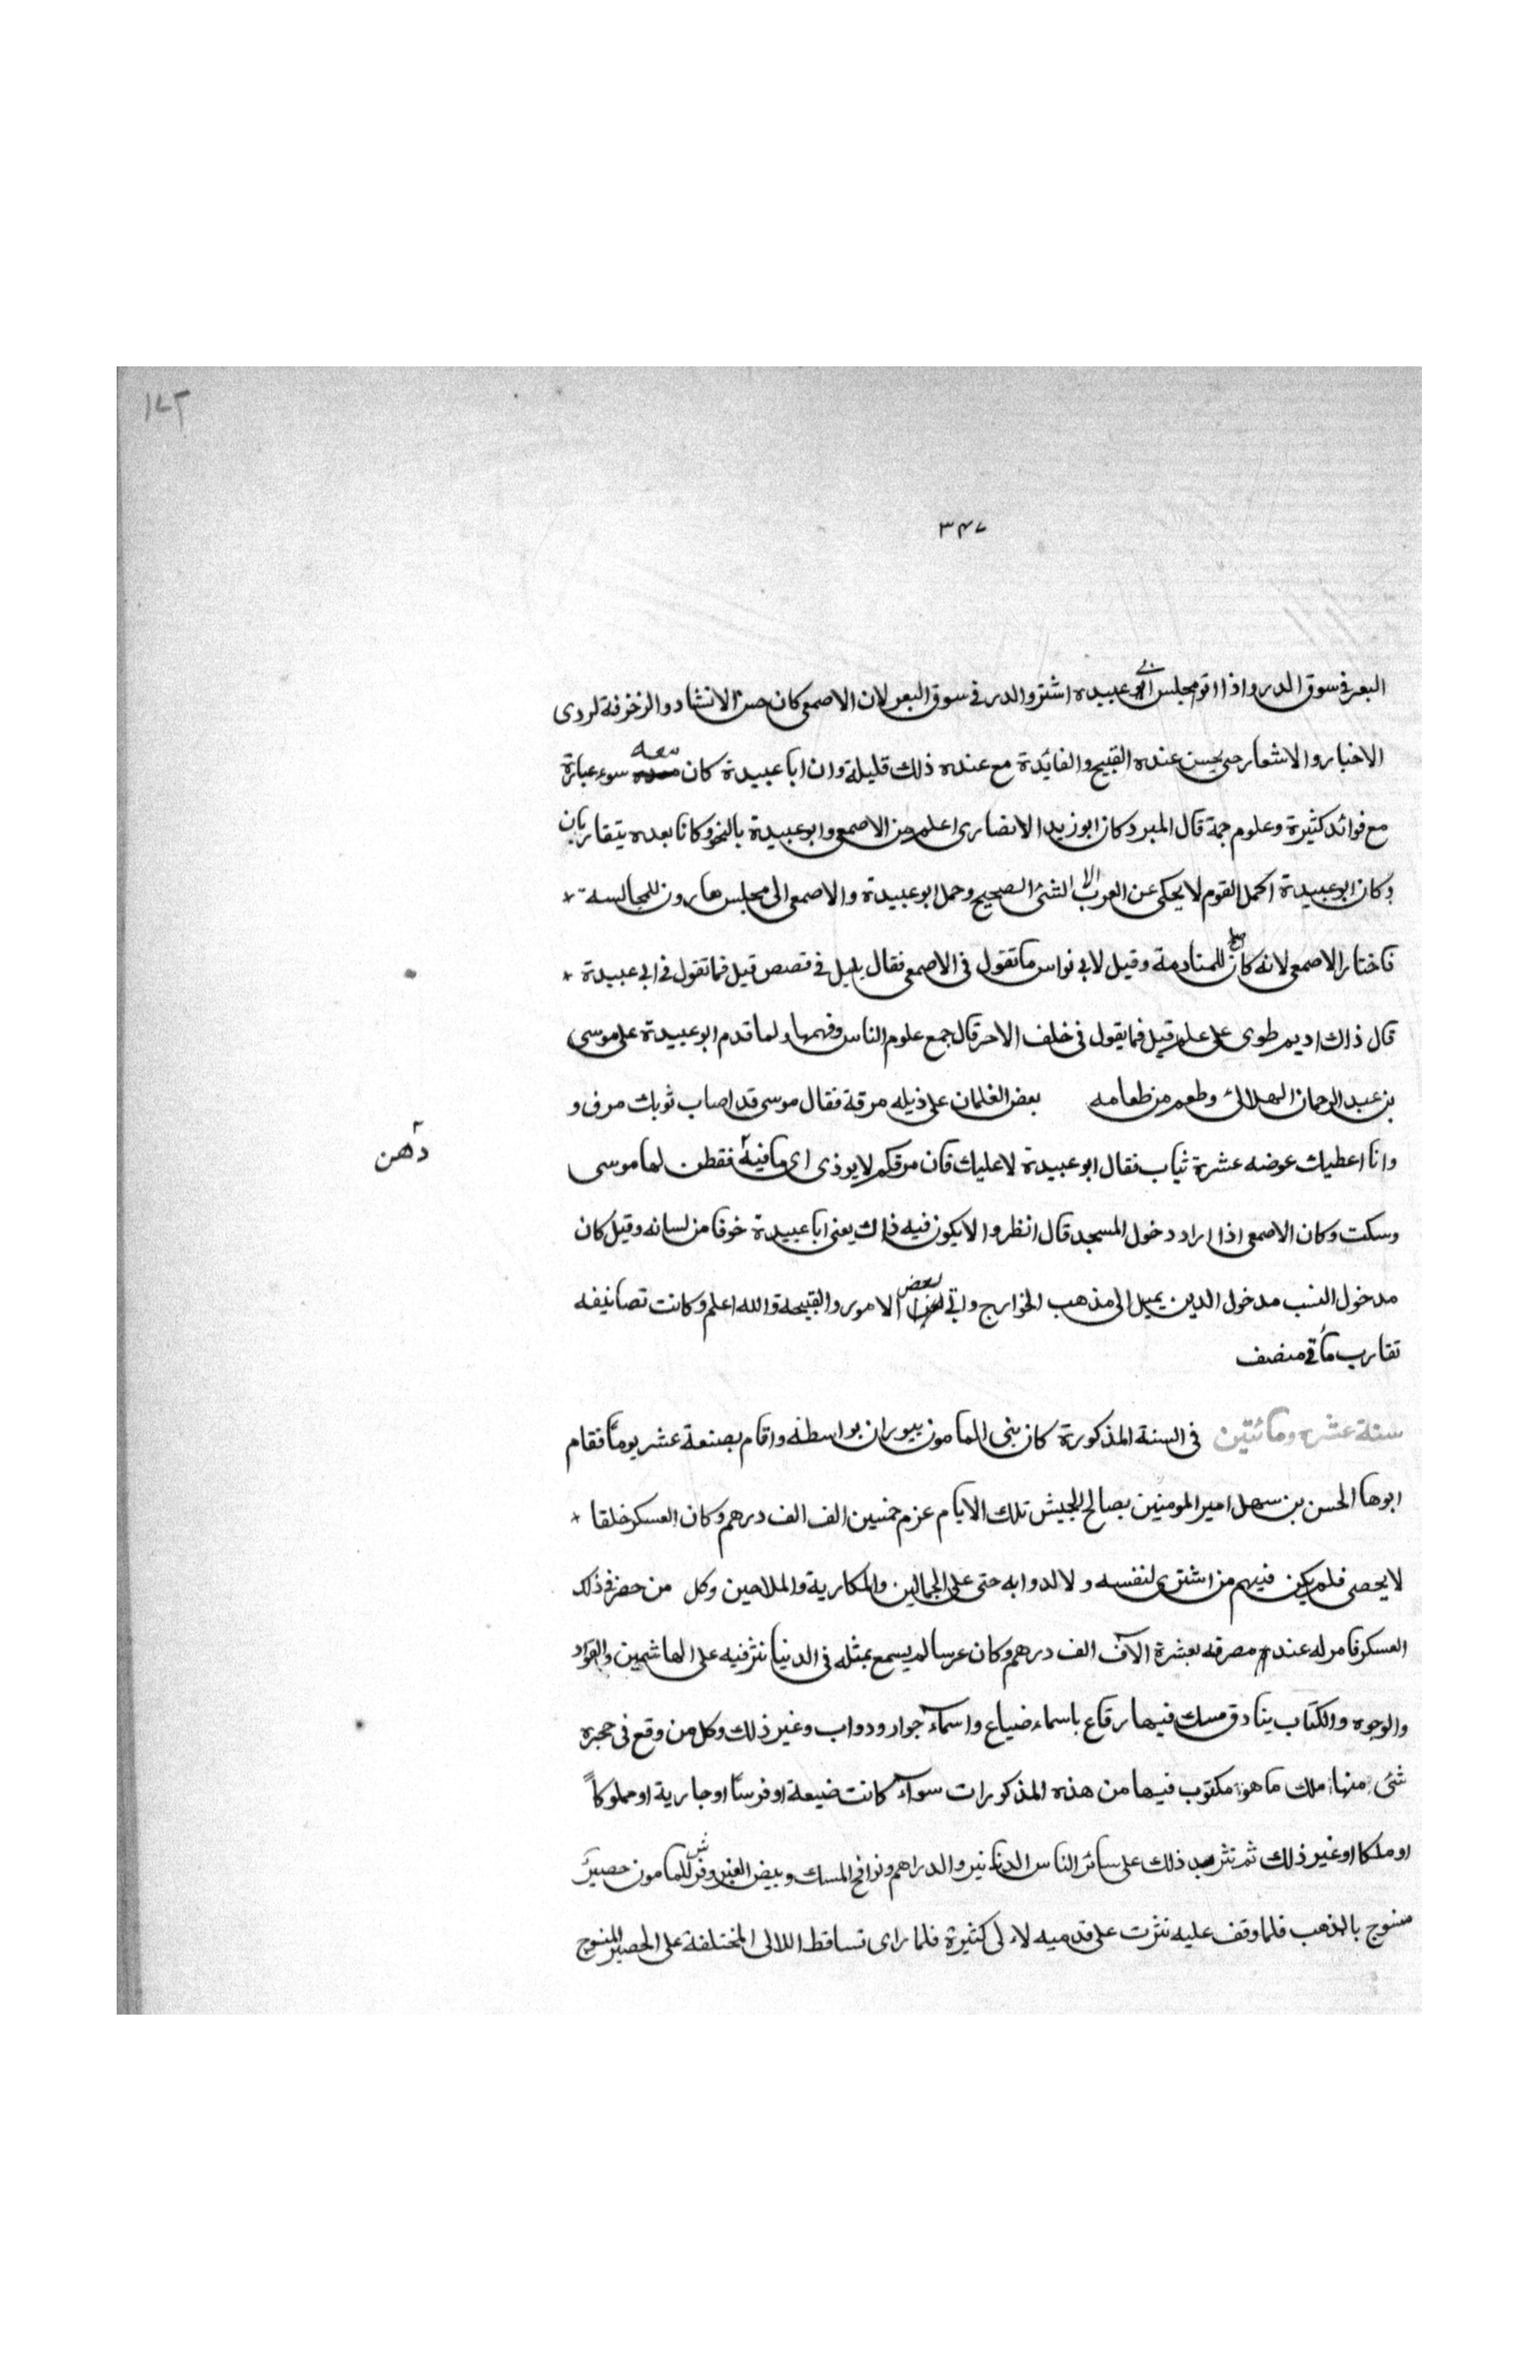 ١٧٢
٣٤٧
البعر في سوق الدر واذا اتو مجلس ابي عبيدة اشتروا لدر في سوق البعر لان الاصمعي كان حسن الانشاد والزخرفة لردى
الاخبار والاشعار حتى يحسن عنده القبيح والفائدة مع عنده ذلك قليلة وان ابا عبيدة كان معه سوء عبارة
مع فوائد كثيرة وعلوم جمة قال المبرد كان ابو زيد الانصارى اعلم من الاصمعي وابو عبيدة بالنحو وكانا بعده يتقاربان
وكان ابو عبيدة اكمل القوم لا يحكى عن العرب الا الشئ الصحيح وحمل ابو عبيدة والاصمعى الى مجلس هارون للمجالسة
فاختار الاصمعى لانه كان اصلح للمنادمة وقيل لابى نواس ما تقول فى الاصمعى فقال بلبل فى قصص قيل فما تقول فى ابى عبيدة
قال ذاك اديم طوى على علم قيل فما يقول فى خلف الاحمر قال جمع علوم الناس وفهمها ولما قدم ابو عبيدة على موسى
بن عبد الرحمان الهلالى وطعم من طعامه بعض الغلمان على ذيله مرقة فقال موسى قد اصاب ثوبك مرق و
وانا اعطيك عوضه عشرة ثياب فقال ابو عبيدة لا عليك فان مرقكم لا يوذى اى ما فيه فقطن لها موسى
دهن
وسكت وكان الاصمعى اذا اراد دخول المسجد قال انظروا لا يكون فيه ذاك يعنى ابا عبيدة خوفا من لسانه وقيل كان
مدخول النسب مدخول الدين يميل الى مذهب الخوارج والى بعض الامور والقبيحة والله اعلم وكانت تصانيفه
تقارب مأتى مصنف
سنة عشر ومائتين فى السنة المذكورة كان بنى المامون ببوران بواسطه واقام بصنعة عشر يوماً فقام
ابوها الحسن بن سهل امير المومنين بصالح الجيش تلك الايام عزم خمسين الف الف درهم وكان العسكر خلقا
لا يحصى فلم يكن فيهم من اشترى لنفسه ولا لدوابه حتى على الجمالين والمكارية والملاحين وكل من حضر فى ذلك
العسكر فامر له عند مصرفه بعشرة الآف الف درهم وكان عرسا لم يسمع بمثله فى الدنيا نثر فيه على الهاشمين والقواد
والوجوه والكتاب بنادق مسك فيها رقاع باسماء ضياع واسمآء جوار ودواب وغير ذلك وكل من وقع فى حجره
شئ منها ملك ما هو مكتوب فيها من هذه المذكورات سوآء كانت ضيعة او فرساً او جارية او مملوكاً
او ملكا او غير ذلك ثم نثر بعد ذلك على سائر الناس الدنانير والدراهم ونوافج المسك وبيض العنبر وفرش للمامون حصير
منسوج بالذهب فلما وقف عليه نثرت على قدميه لاءلى كثيرة فلما راى تساقط اللالى المختلفة على الحصير المنسوج